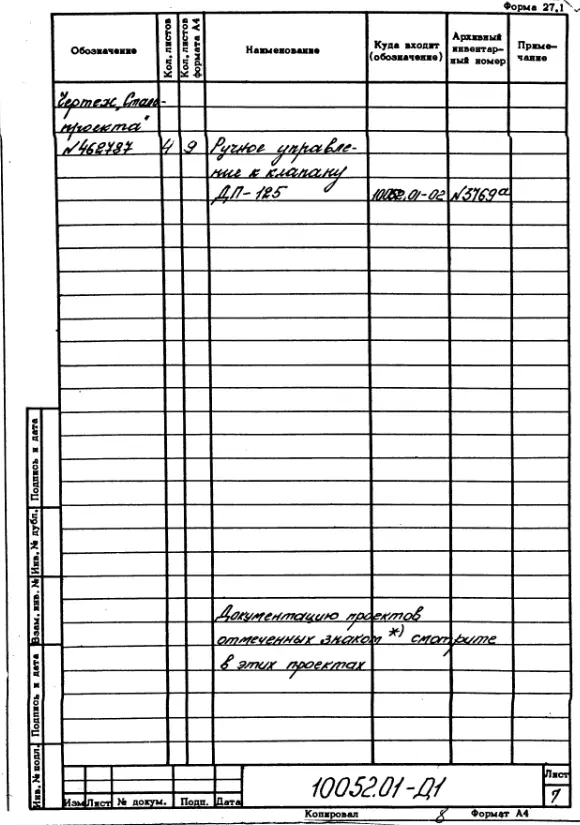 Форма 27.1
Обозначение Кол. листов Кол. листов формата А4 Наименование Куда входит (обозначение) Архивный инвентар- ный номер Приме- чание
Чертеж „Сталь-
проекта"
№462787 4 9 Ручное управле-
ние к клапану
ДП-125 10052.01-02 №3769а
Документацию проектов
отмеченных знаком *) смотрите
в этих проектах
Инв. № подл. Подпись и дата Взам. инв. № Инв. № дубл. Подпись и дата
Изм Лист № докум. Подп. Дата
10052.01-Д1
Лист
7
Копировал 8 Формат А4